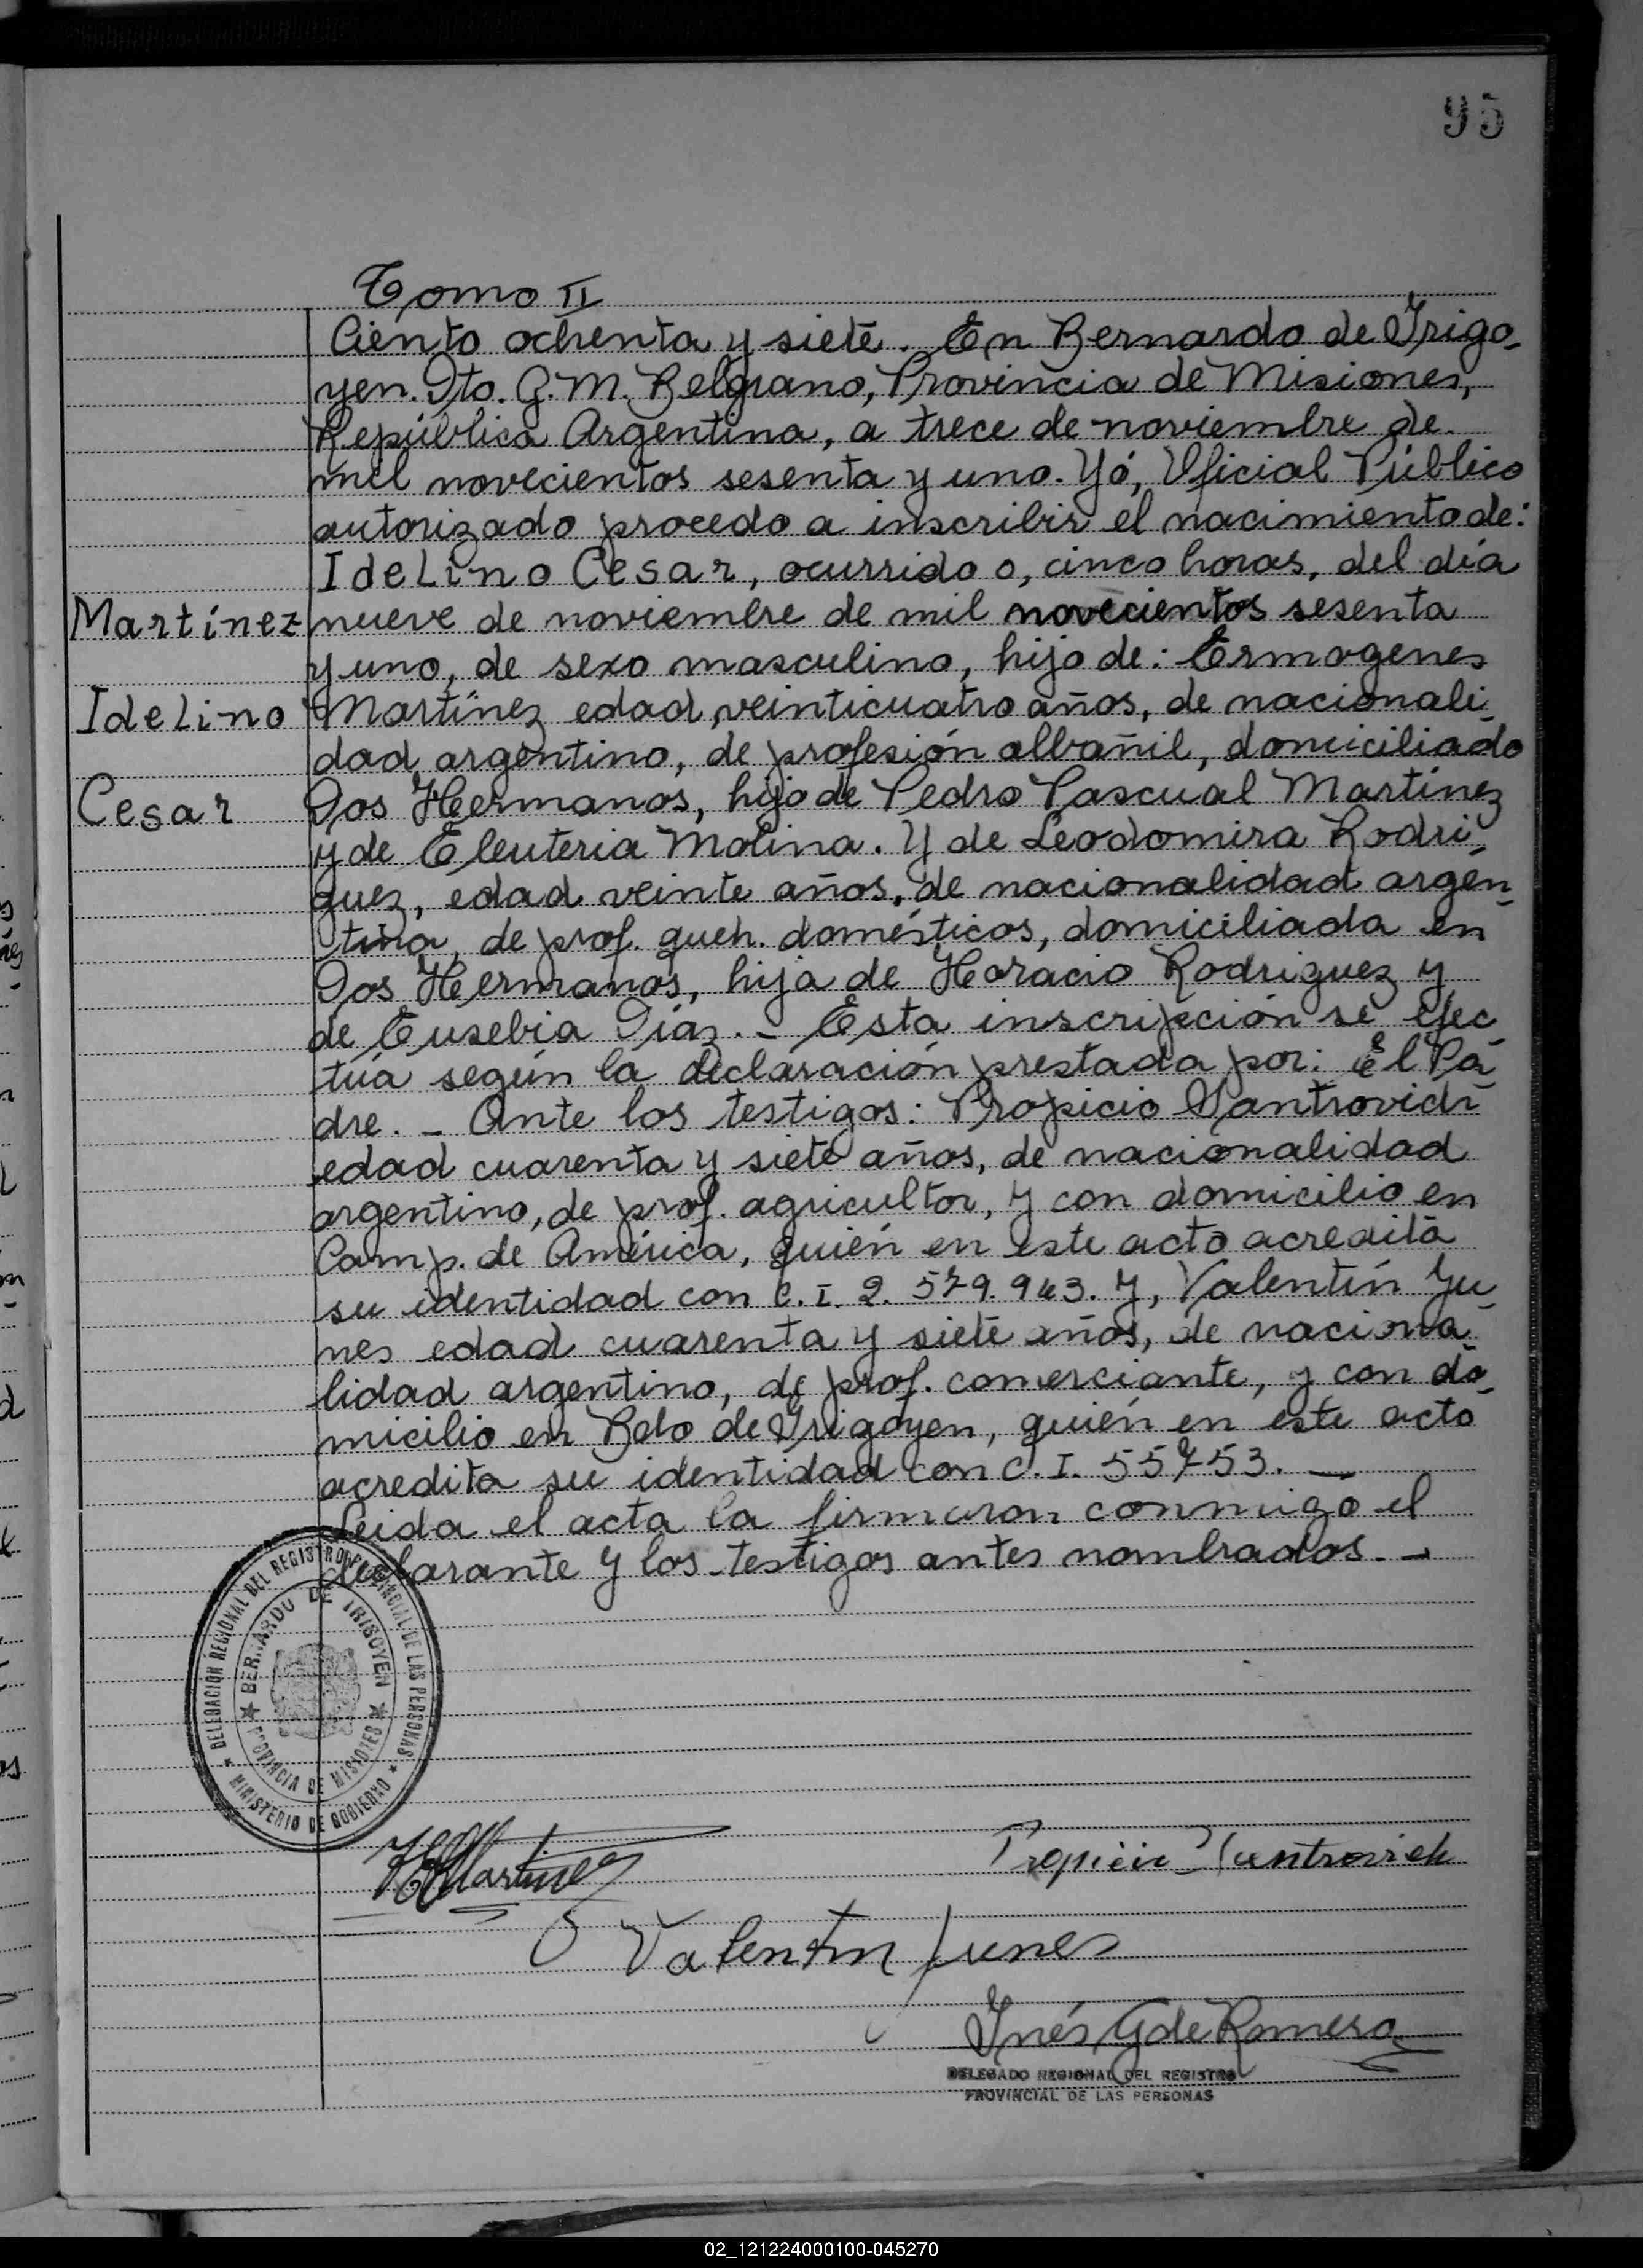 95
Tomo II
Ciento ochenta y siete. En Bernardo de Irigo-
yen. Dto. G. M. Belgrano, Provincia de Misiones,
República Argentina, a trece de noviembre de
mil novecientos sesenta y uno. Yó, Oficial Público
autorizado procedo a inscribir el nacimiento de:
IdeLino Cesar, ocurrido o, cinco horas, del día
Martínez nueve de noviembre de mil novecientos sesenta
y uno, de sexo masculino, hijo de: Ermogenes
IdeLino Martínez edad, veinticuatro años, de nacionali-
dad, argentino, de profesión albañil, domiciliado
Cesar Dos Hermanos, hijo de Pedro Pascual Martínez
y de Eleuteria Molina. Y de Leodomira Rodri-
guez, edad veinte años, de nacionalidad argen-
tina, de prof. queh. domésticos, domiciliada en
Dos Hermanos, hija de Horacio Rodriguez y
de Eusebia Díaz. - Esta inscripción se efec-
túa según la declaración prestada por: El Pa-
dre. - Ante los testigos: Propicio
edad cuarenta y siete años, de nacionalidad
argentino, de prof. agricultor, y con domicilio en
Camp. de América, quién en este acto acredita
su identidad con C. I. 2. 579. 943. Y, Valentín Yu-
nes edad cuarenta y siete años, de naciona-
lidad argentino, de prof. comerciante, y con do-
micilio en Bdo de Irigoyen, quién en este acto
acredita su identidad con C. I. 55753. —
Leida el acta la firmaron conmigo el
declarante y los testigos antes nombrados. -
DELEGACIÓN REGIONAL DEL REGISTRO PROVINCIAL DE LAS PERSONAS
BERNARDO DE IRIGOYEN
PROVINCIA DE MISIONES
MINISTERIO DE GOBIERNO
Martinez
Propicio
Valentin Yunes
Inés G de Romero
DELEGADO REGIONAL DEL REGISTRO
PROVINCIAL DE LAS PERSONAS
02_121224000100-045270